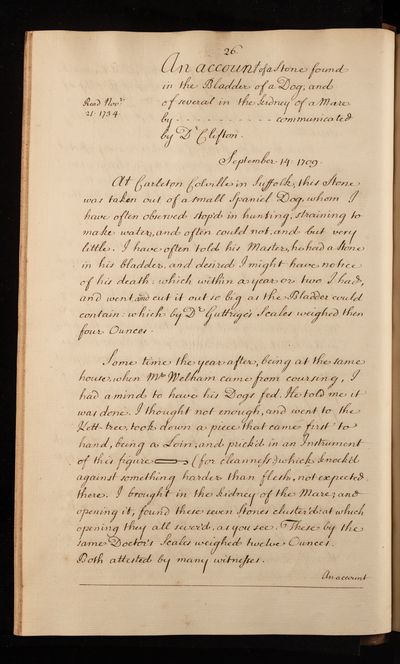 26.
An account of a Stone found
in the Bladder of a Dog, and
Read Novr. of several in the Kidney of a Mare
21. 1734. by - - - - - - - - - - communicated
by Dr. Clefton.
September 14. 1709.
At Carleton Colville in Suffolk, this Stone
was taken out of a small Spaniel Dog, whom I
have often observed stop'd in hunting, straining to
make water, and often could not, and but very
little. I have often told his Master, he had a Stone
in his bladder, and desired I might have notice
of his death: which within a year or two I had,
and went and cut it out so big as the Bladder could
contain: which by Dr. Guthrige's Scales weighed then
four Ounces.
Some time the year after, being at the same
house, when Mr. Welham came from coursing, I
had a mind to have his Dogs fed. He told me it
was done. I thought not enough, and went to the
Kett-tree, took down a piece that came first to
hand, being a Loin, and prick'd in an Instrument
of this figure (for cleanness) which knock'd
against something harder than flesh, not expected
there. I brought in the kidney of the Mare, and
opening it, found these seven Stones cluster'd: at which
opening they all sever'd, as you see. These by the
same Doctor's Scales weighed twelve Ounces.
Both attested by many witnesses.
An account